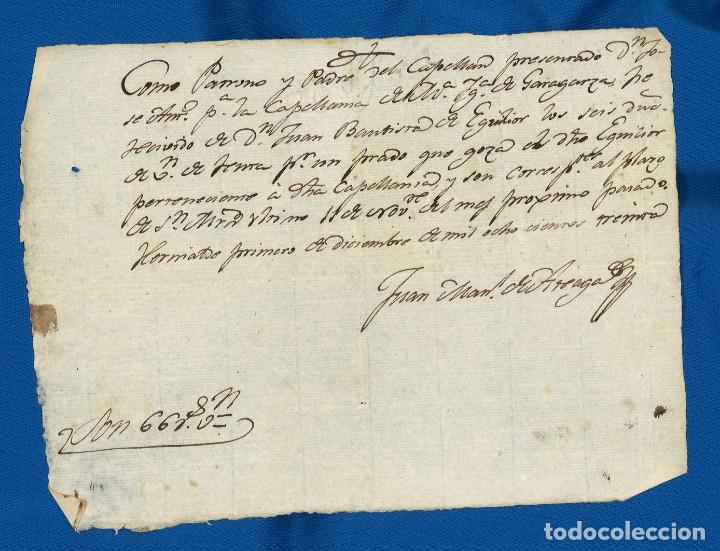 Como Patrono y Padre del Capellan presentado Dn. Jo-
se Anto. pa. la Capellania de Na. Sa. de Garagarza, he
recivido de Dn. Juan Bautista de Eguilior los seis Ducs.
de Vn. de renta pr. un prado que goza el dho Eguilior
perteneciente à dha Capellania, y son corresptes. al plazo
de Sn. Mrn. ultimo 11 de Nove. del mes proximo pasado.
Hernialde primero de diciembre de mil ocho cientos treinta
Juan Manl. de Arteaga
Son 66 rs. Vn
todocoleccion